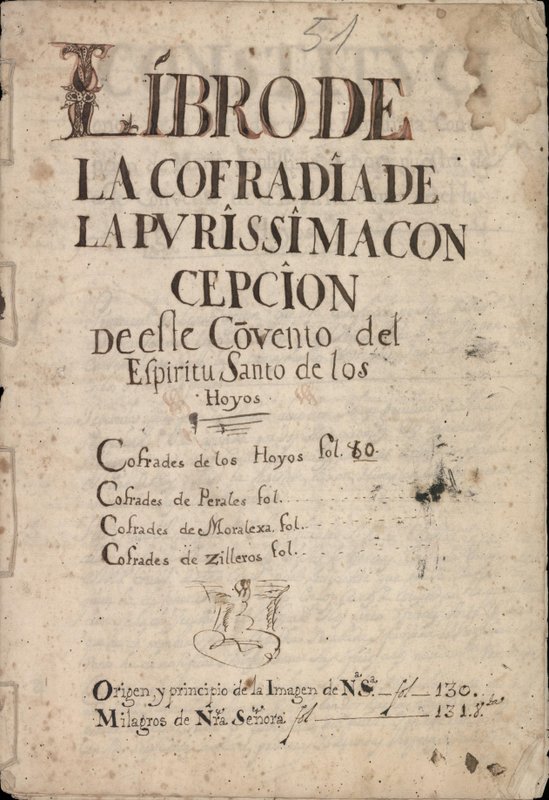 51
LÍBRO DE
LA COFRADÎA DE
LA PVRÎSSÎMA CON
CEPCÎON
De este Cōvento del
Espiritu Santo de los
Hoyos
Cofrades de los Hoyos fol. 80.
Cofrades de Perales fol.
Cofrades de Moralexa. fol.
Cofrades de Zilleros fol.
Origen, y principio de la Imagen de N.ª S.ª fol 130.
Milagros de Ñra Señora. fol 131.